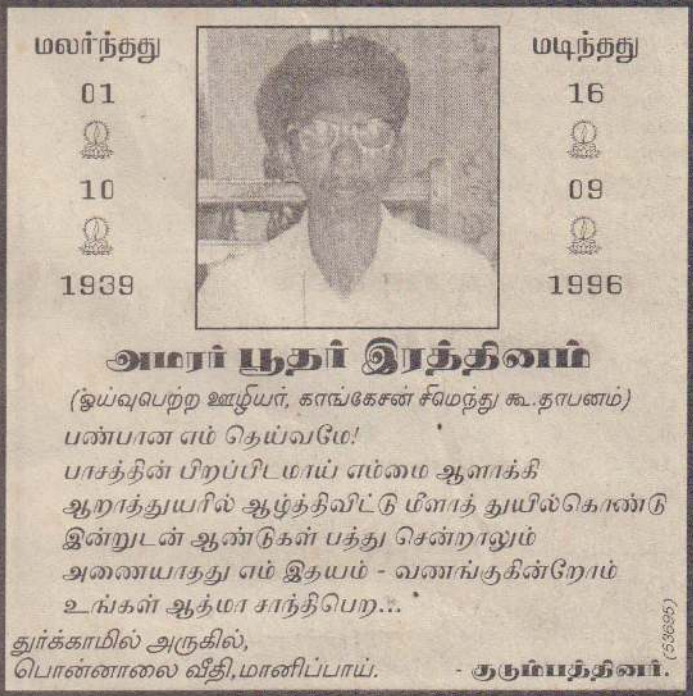 மலர்ந்தது
01
10
1939
மடிந்தது
16
09
1996
அமரர் பூதர் இரத்தினம்
(ஓய்வுபெற்ற ஊழியர், காங்கேசன் சீமெந்து கூ.தாபனம்)
பண்பான எம் தெய்வமே!
பாசத்தின் பிறப்பிடமாய் எம்மை ஆளாக்கி
ஆறாத்துயரில் ஆழ்த்திவிட்டு மீளாத் துயில்கொண்டு
இன்றுடன் ஆண்டுகள் பத்து சென்றாலும்
அணையாதது எம் இதயம் - வணங்குகின்றோம்
உங்கள் ஆத்மா சாந்திபெற...
துர்க்காமில் அருகில்,
பொன்னாலை வீதி,மானிப்பாய்.
- குடும்பத்தினர்.
(53695)